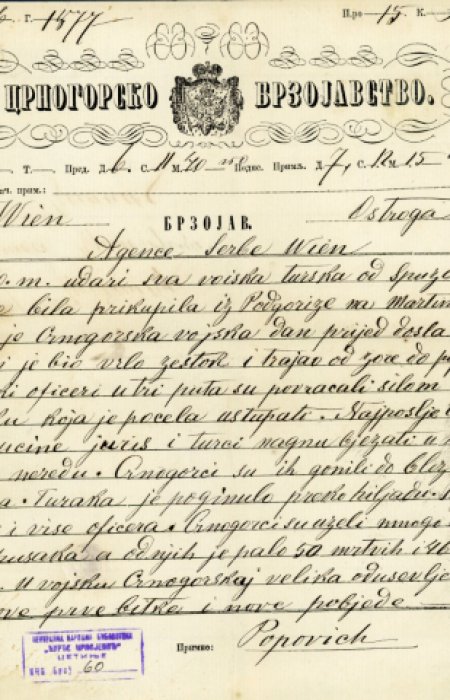 Г. 1877 И.ро 15 К.
ЦРНОГОРСКО БРЗОЈАВСТВО.
Т. Пред. Д. 6 С. 11 М. 20 Поднє. Примљ. Д. 7, С. 12 М. 15
прим.:
Wien БРЗОЈАВ. Ostroga
Agence Serbe Wien
o. m. udari sva vojska turska od Spuza
bila prikupila iz Podgorize na Martin
je Crnogorska vojska dan prijed dosta
j je bio vrlo zestok i trajao od zore do p
ki oficeri u tri puta su povracali silom
ku koja je pocela ustupati. Najposlje
ucine juris i turci nagnu bjezati u
neredu. Crnogorci su ih gonili do bliz
a. Turaka je poginulo preko hiljadu
i vise oficera. Crnogorci su uzeli mnogo
pusaka a od njih je palo 50 mrtvih i
U vojsku Crnogorskoj velika odusevlje
ove prve bitke i nove pobjede
Примио: Popovich
ЦЕНТРАЛНА НАРОДНА БИБЛИОТЕКА
„ЂУРЂЕ ЦРНОЈЕВИЋ"
ЦЕТИЊЕ
ИНВ. БРОЈ 60